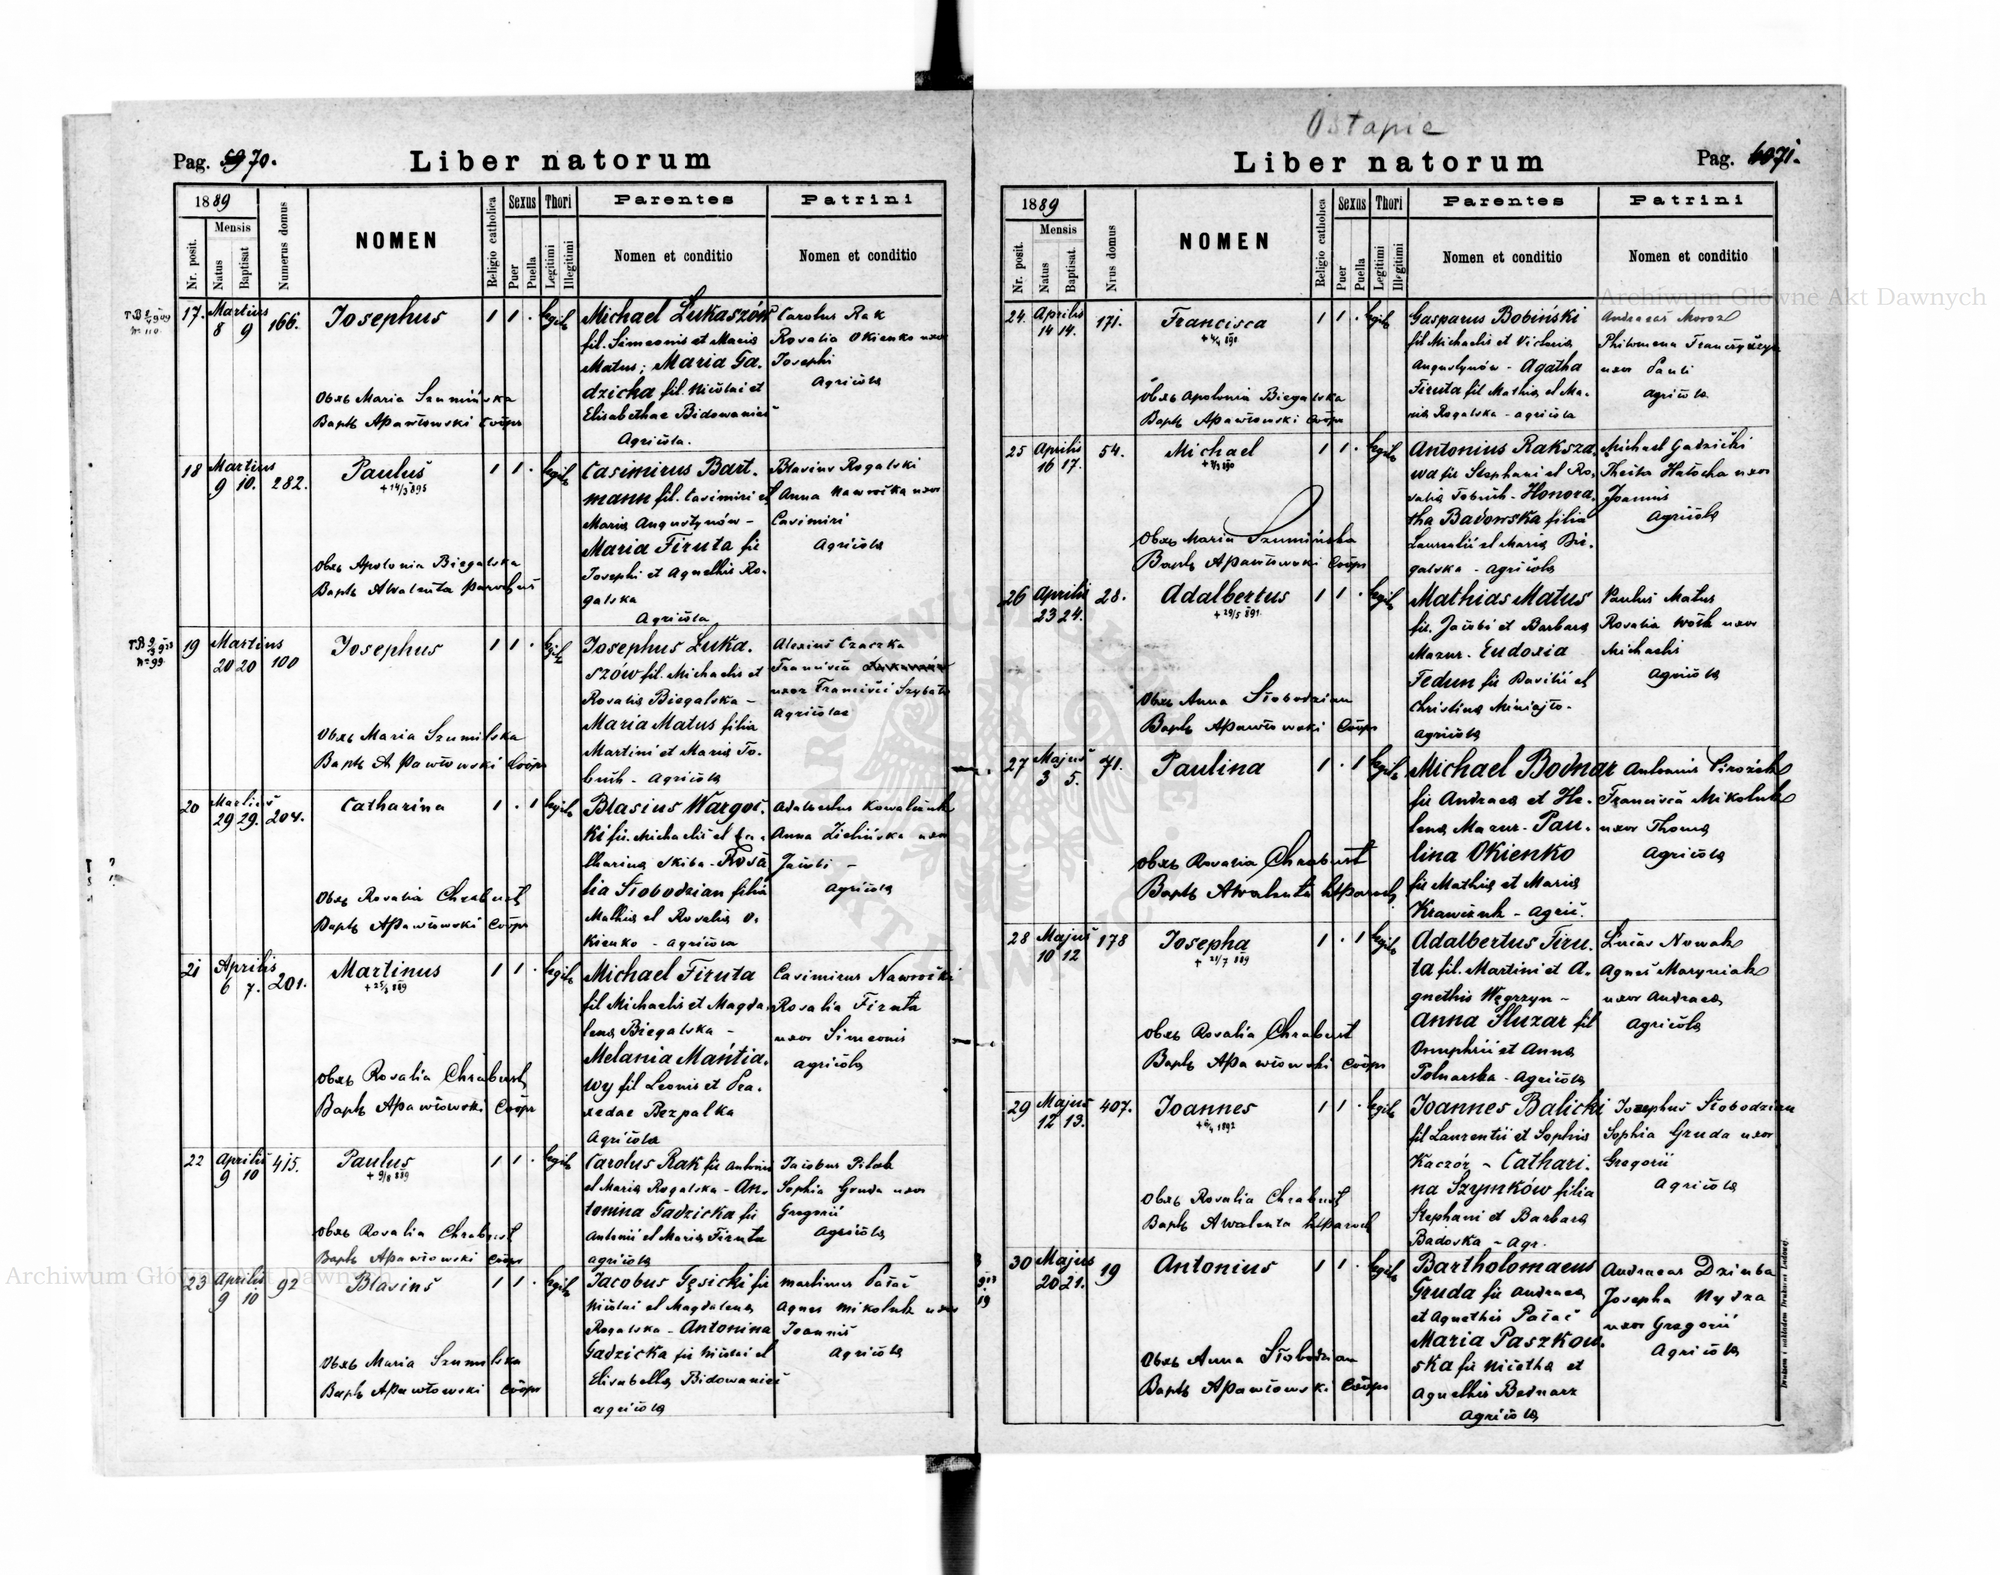 Ostapie
Pag. 70.
Liber natorum
1889
Nr. posit.
Mensis
Natus
Baptisat
Numerus domus
NOMEN
Religio catholica
Sexus
Puer
Puella
Thori
Legitimi
Illegitimi
Parentes
Nomen et conditio
Patrini
Nomen et conditio
17. Martius 8 9 166. Josephus 1 1 . legit.
Michael Łukaszów
fil. Simeonis et Maria
Matus; Maria Ga-
dzicka fil. Nicolai et
Elisabethae Bidowaniec
Agricola.
Carolus Rak
Rosalia Okienko uxor
Josephi
Agricola
Obst. Maria Szumińska
Bapt. A Pawłowski Coop
18 Martius 9 10. 282. Paulus 1 1 . legit.
+ 14/3 895
Casimirus Bart-
mann fil. Casimiri et
Maria Augustynów -
Maria Firuta fil
Josephi et Agnethis Ro-
galska
Agricola
Blasius Rogalski
Anna Nawrocka uxor
Casimiri
Agricola
Obst. Apolonia Biegalska
Bapt. A Walenta parochus
19 Martius 20 20 100 Josephus 1 1 . legit.
Josephus Łuka-
szów fil. Michaelis et
Rosalia Biegalska -
Maria Matus filia
Martini et Maria To-
buch - Agricola
Alexius Czaczka
Francisca
uxor Francisci Szybała
Agricolae
Obst. Maria Szumilska
Bapt. A Pawłowski Coop
20 Martius 29 29. 204. Catharina 1 . 1 legit.
Blasius Wargoc-
ki fil. Michaelis et Ca-
tharina Skiba - Rosa
lia Słobodzian filia
Mathia et Rosalia O-
kienko - Agricola
Adalbertus Kowalczuk
Anna Zielińska uxor
Jacobi -
Agricola
Obst. Rosalia Chrabust
Bapt. A Pawłowski Coop
21 Aprilis 6 7. 201. Martinus 1 1 . legit.
Michael Firuta
fil Michaelis et Magda-
lena Biegalska -
Melania Mańtia-
wy fil Leonis et Pra-
xedae Bezpalka
Agricola
Casimirus Nawrocki
Rosalia Firuta
uxor Simeonis
agricola
Obst. Rosalia Chrabust
Bapt. A Pawłowski Coop
22 Aprilis 9 10 415. Paulus 1 1 . legit.
+ 9/8 889
Carolus Rak fil Antonii
et Maria Rogalska - An-
tonina Gadzicka fil
Antonii et Maria Firuta
agricola
Jacobus Pilab
Sophia Gruda uxor
Gregorii
Agricola
Obst. Rosalia Chrabust
Bapt. A Pawłowski Coop
23 Aprilis 9 10 92 Blasius 1 1 . legit.
Jacobus Gęsicki fil
Nicolai et Magdalena
Rogalska - Antonina
Gadzicka fil Nicolai et
Elisabetha Bidowaniec
agricola
Martinus Pałac
Agnes Mikoluk uxor
Joannis
Agricola
Obst. Maria Szumilska
Bapt. A Pawłowski Coop
Liber natorum
Pag. 71.
1889
Nr. posit.
Mensis
Natus
Baptisat.
Nrus domus
NOMEN
Religio catholica
Sexus
Puer
Puella
Thori
Legitimi
Illegitimi
Parentes
Nomen et conditio
Patrini
Nomen et conditio
24. Aprilis 14 14. 171. Francisca 1 1 . legit.
Gasparus Bobiński
fil Michaelis et Victoria
Augustynów - Agatha
Firuta fil Mathia et Ma-
ria Rogalska - agricola
Andreas Moroz
Philomena Franczyszyn
uxor Pauli
agricola
Obst. Apolonia Biegalska
Bapt. A Pawłowski Coop
25 Aprilis 16 17. 54. Michael 1 1 . legit.
Antonius Raksza-
wa fil Stephani et Ro-
salia Tobuch - Honora-
tha Badowska filia
Laurentii et Maria Bie-
galska - agricola
Michael Gadzicki
Thecla Hałocha uxor
Joannis
Agricola
Obst. Maria Szumińska
Bapt. A Pawłowski Coop
26 Aprilis 23 24. 28. Adalbertus 1 1 . legit.
+ 29/5 891.
Mathias Matus
fil. Jacobi et Barbara
Mazur - Eudoxia
Fedun fil Basilii et
Christina Miniajło -
agricola
Paulus Matus
Rosalia Wośk uxor
Michaelis
Agricola
Obst. Anna Słobodzian
Bapt. A Pawłowski Coop
27 Majus 3 5. 71. Paulina 1 . 1 legit.
Michael Bodnar
fil Andreae et He-
lena Mazur - Pau-
lina Okienko
fil Mathia et Maria
Krawczuk - Agric.
Francisca Mikoluk
uxor Thoma
Agricola
Obst. Rosalia Chrabust
Bapt. A Walenta paroch
28 Majus 10 12 178 Josepha 1 . 1 legit.
Adalbertus Firu-
ta fil. Martini et A-
gnethis Węgrzyn -
Anna Sluzar fil
Onuphrii et Anna
Polnarska - Agricola
Lucas Nowak
Agnes Maryniak
uxor Andreae
Agricola
Obst. Rosalia Chrabust
Bapt. A Pawłowski Coop
29 Majus 12 13. 407. Joannes 1 1 . legit.
Joannes Balicki
fil Laurentii et Sophia
Kaczór - Cathari-
na Szymków filia
Stephani et Barbara
Badoska - Agr.
Josephus Słobodzian
Sophia Gruda uxor
Gregorii
Agricola
Obst. Rosalia Chrabust
Bapt. A Walenta paroch
30 Majus 20 21. 19 Antonius 1 1 . legit.
Bartholomaeus
Gruda fil Andreae
et Agnethis Pałac
Maria Paszkow-
ska fil Nicetha et
Agnethis Bednarz
Agricola
Andreas Dziuba
Josepha Nydza
uxor Gregorii
Agricola
Obst. Anna Słobodzian
Bapt. A Pawłowski Coop
Archiwum Główne Akt Dawnych
Archiwum Główne Akt Dawnych